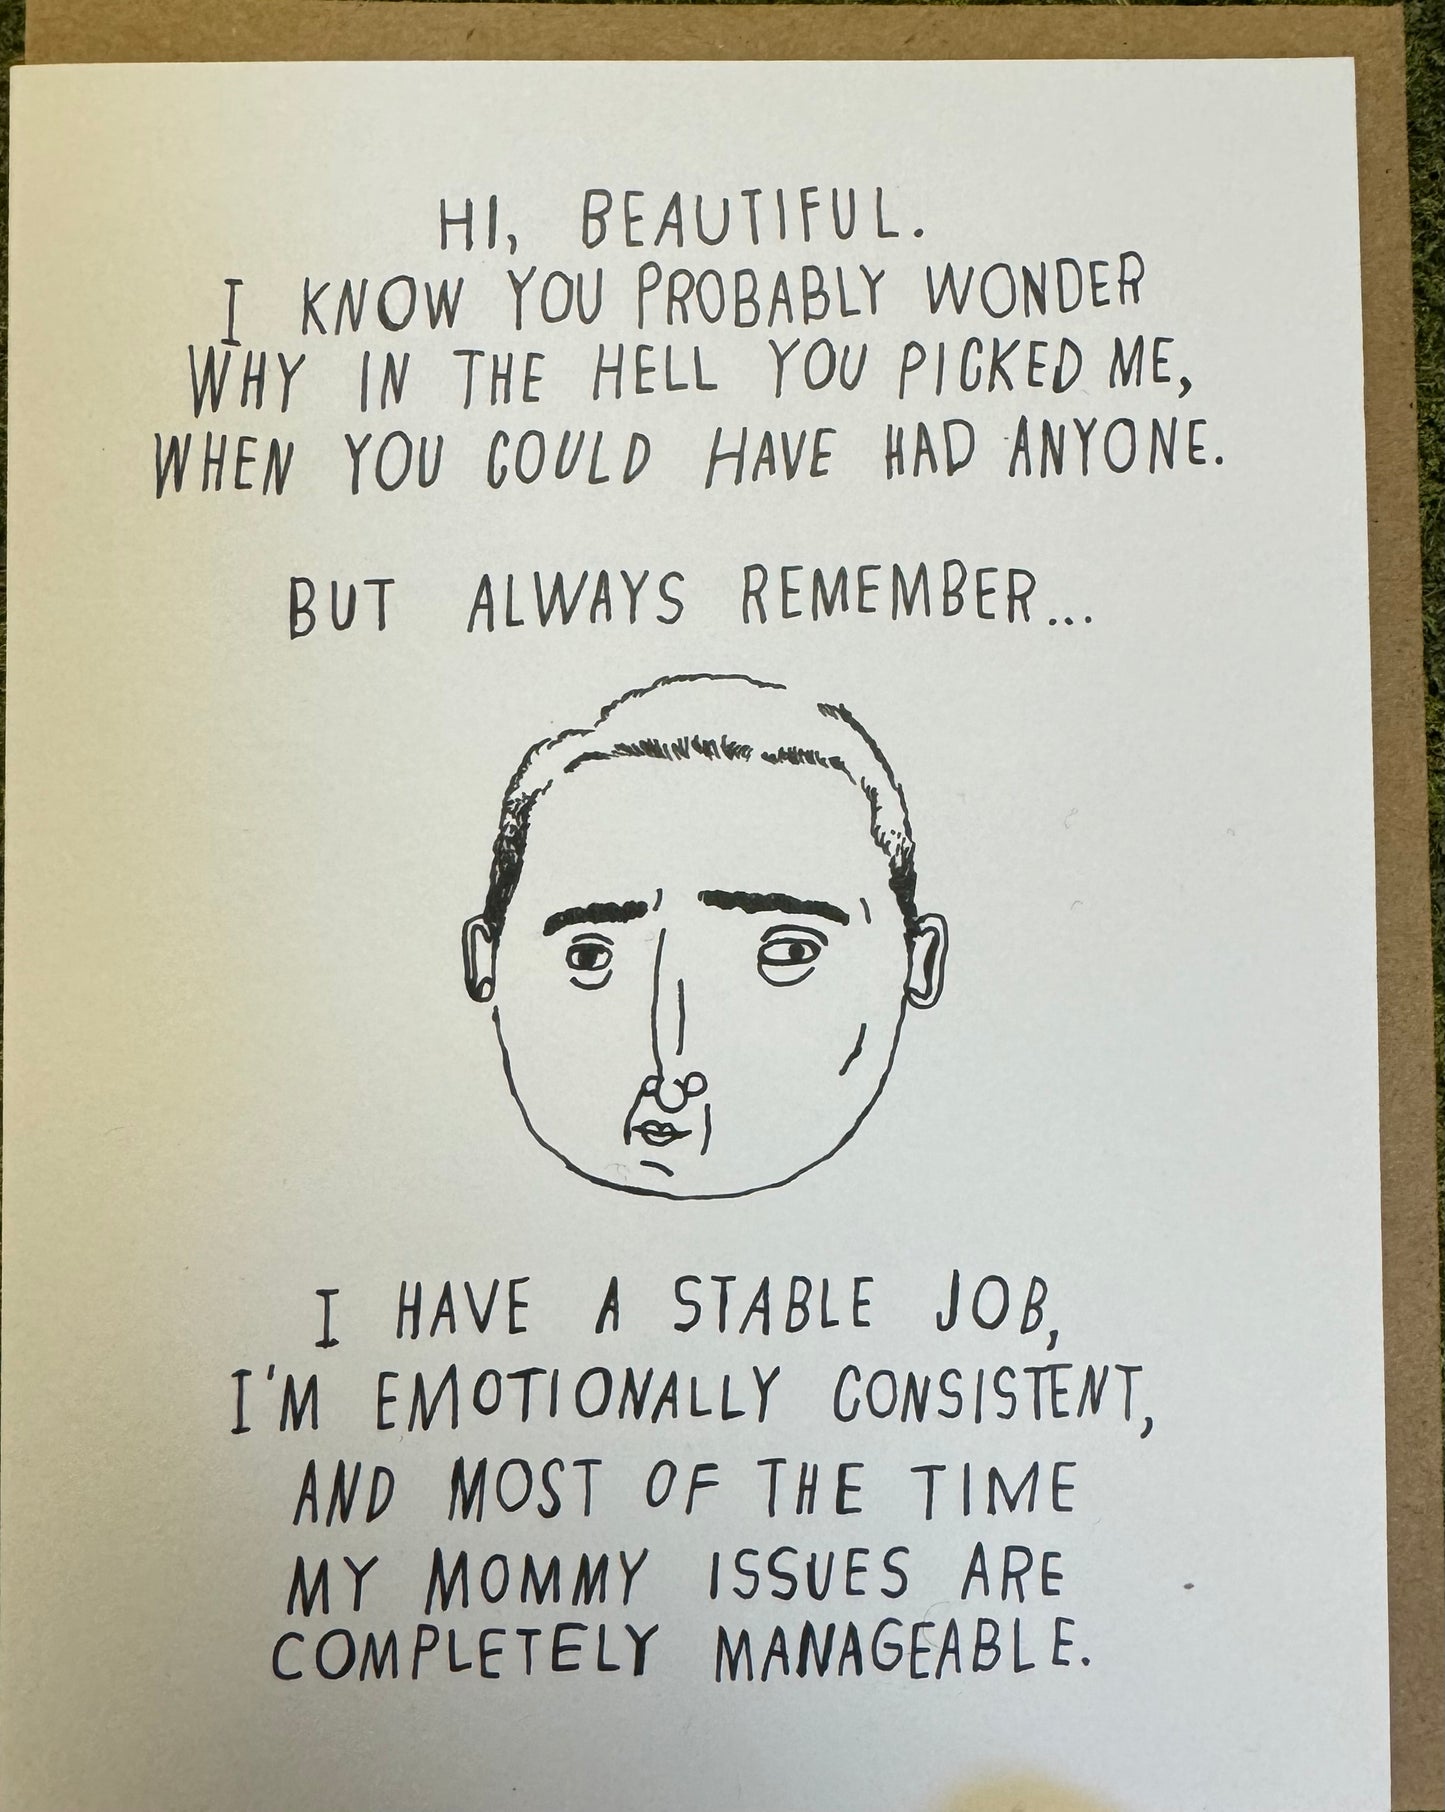 HI, BEAUTIFUL.
I KNOW YOU PROBABLY WONDER
WHY IN THE HELL YOU PICKED ME,
WHEN YOU COULD HAVE HAD ANYONE.
BUT ALWAYS REMEMBER...
I HAVE A STABLE JOB,
I'M EMOTIONALLY CONSISTENT,
AND MOST OF THE TIME
MY MOMMY ISSUES ARE
COMPLETELY MANAGEABLE.